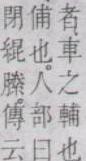 者。車之輔也
俌也。人部曰
閉緄縢。傳云